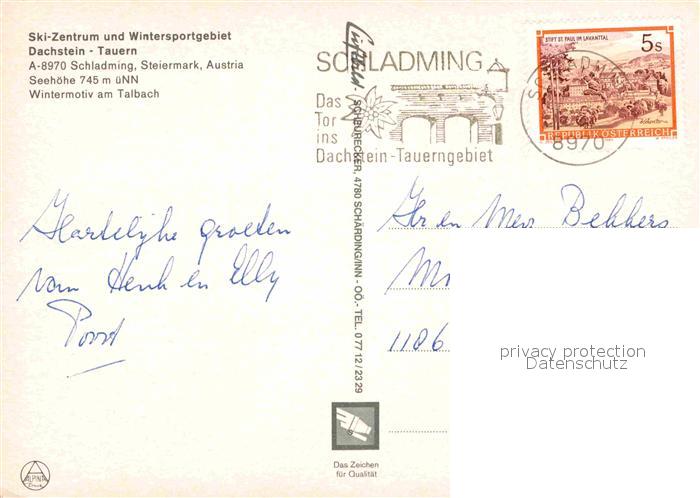 Ski-Zentrum und Wintersportgebiet
Dachstein - Tauern
A-8970 Schladming, Steiermark, Austria
Seehöhe 745 m üNN
Wintermotiv am Talbach
SCHLADMING
Das
Tor
ins
Dachstein-Tauerngebiet
STIFT ST. PAUL IM LAVANTTAL
5s
REPUBLIK ÖSTERREICH
8970
SCHEURECKER, 4780 SCHÄRDING/INN - OÖ.- TEL. 0 77 12 / 23 29
Hartelijke groeten
van Henk en Elly
Hr en Mevr Bekkers
1106
privacy protection
Datenschutz
Das Zeichen
für Qualität
ALPINA